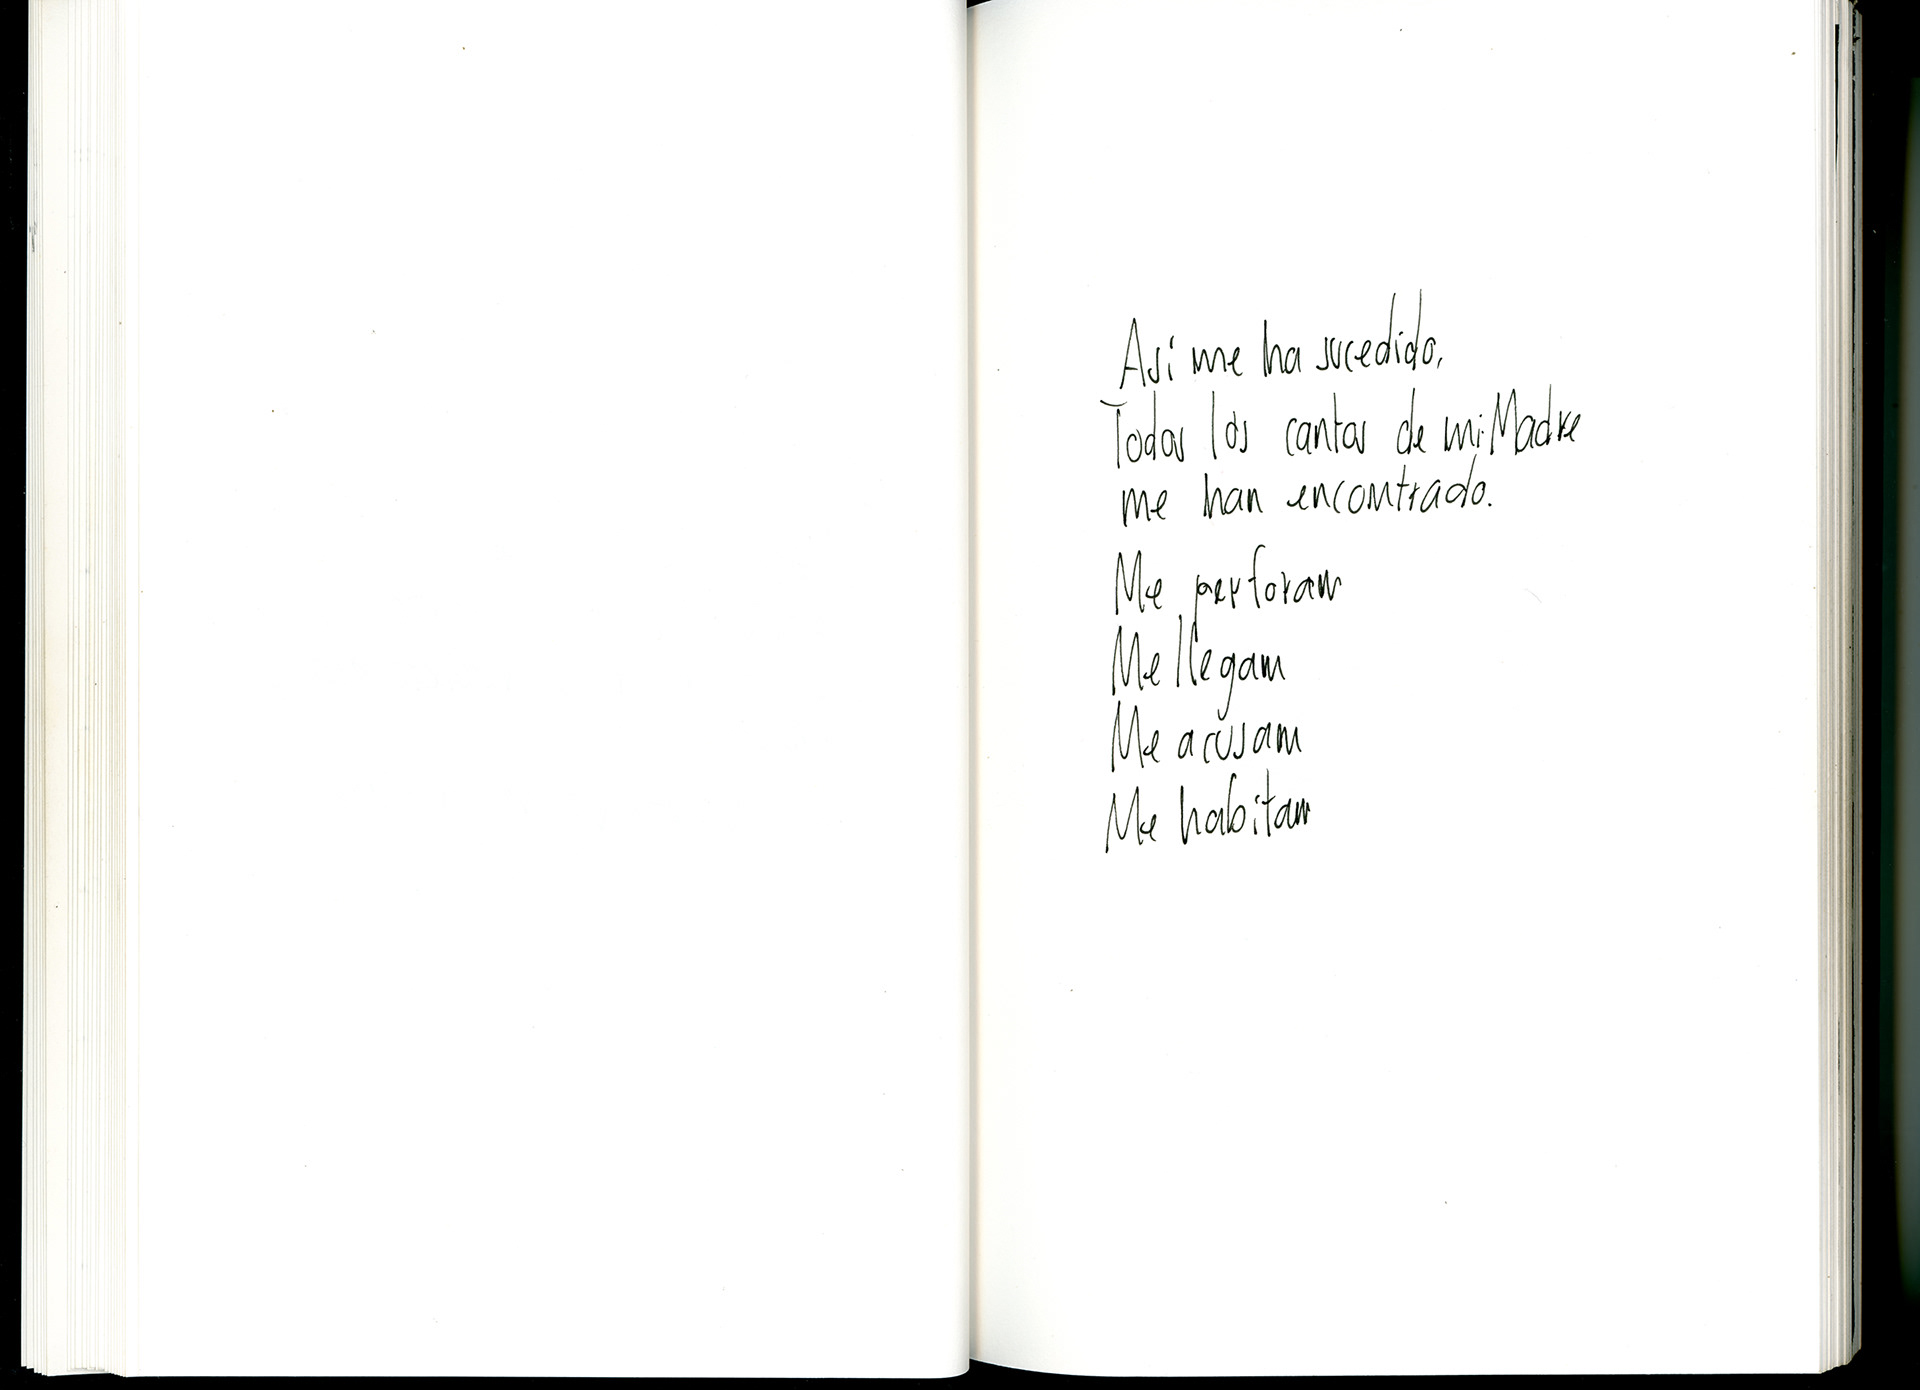 Así me ha sucedido,
Todos los cantos de mi Madre
me han encontrado.
Me perforan
Me llegan
Me acusan
Me habitan